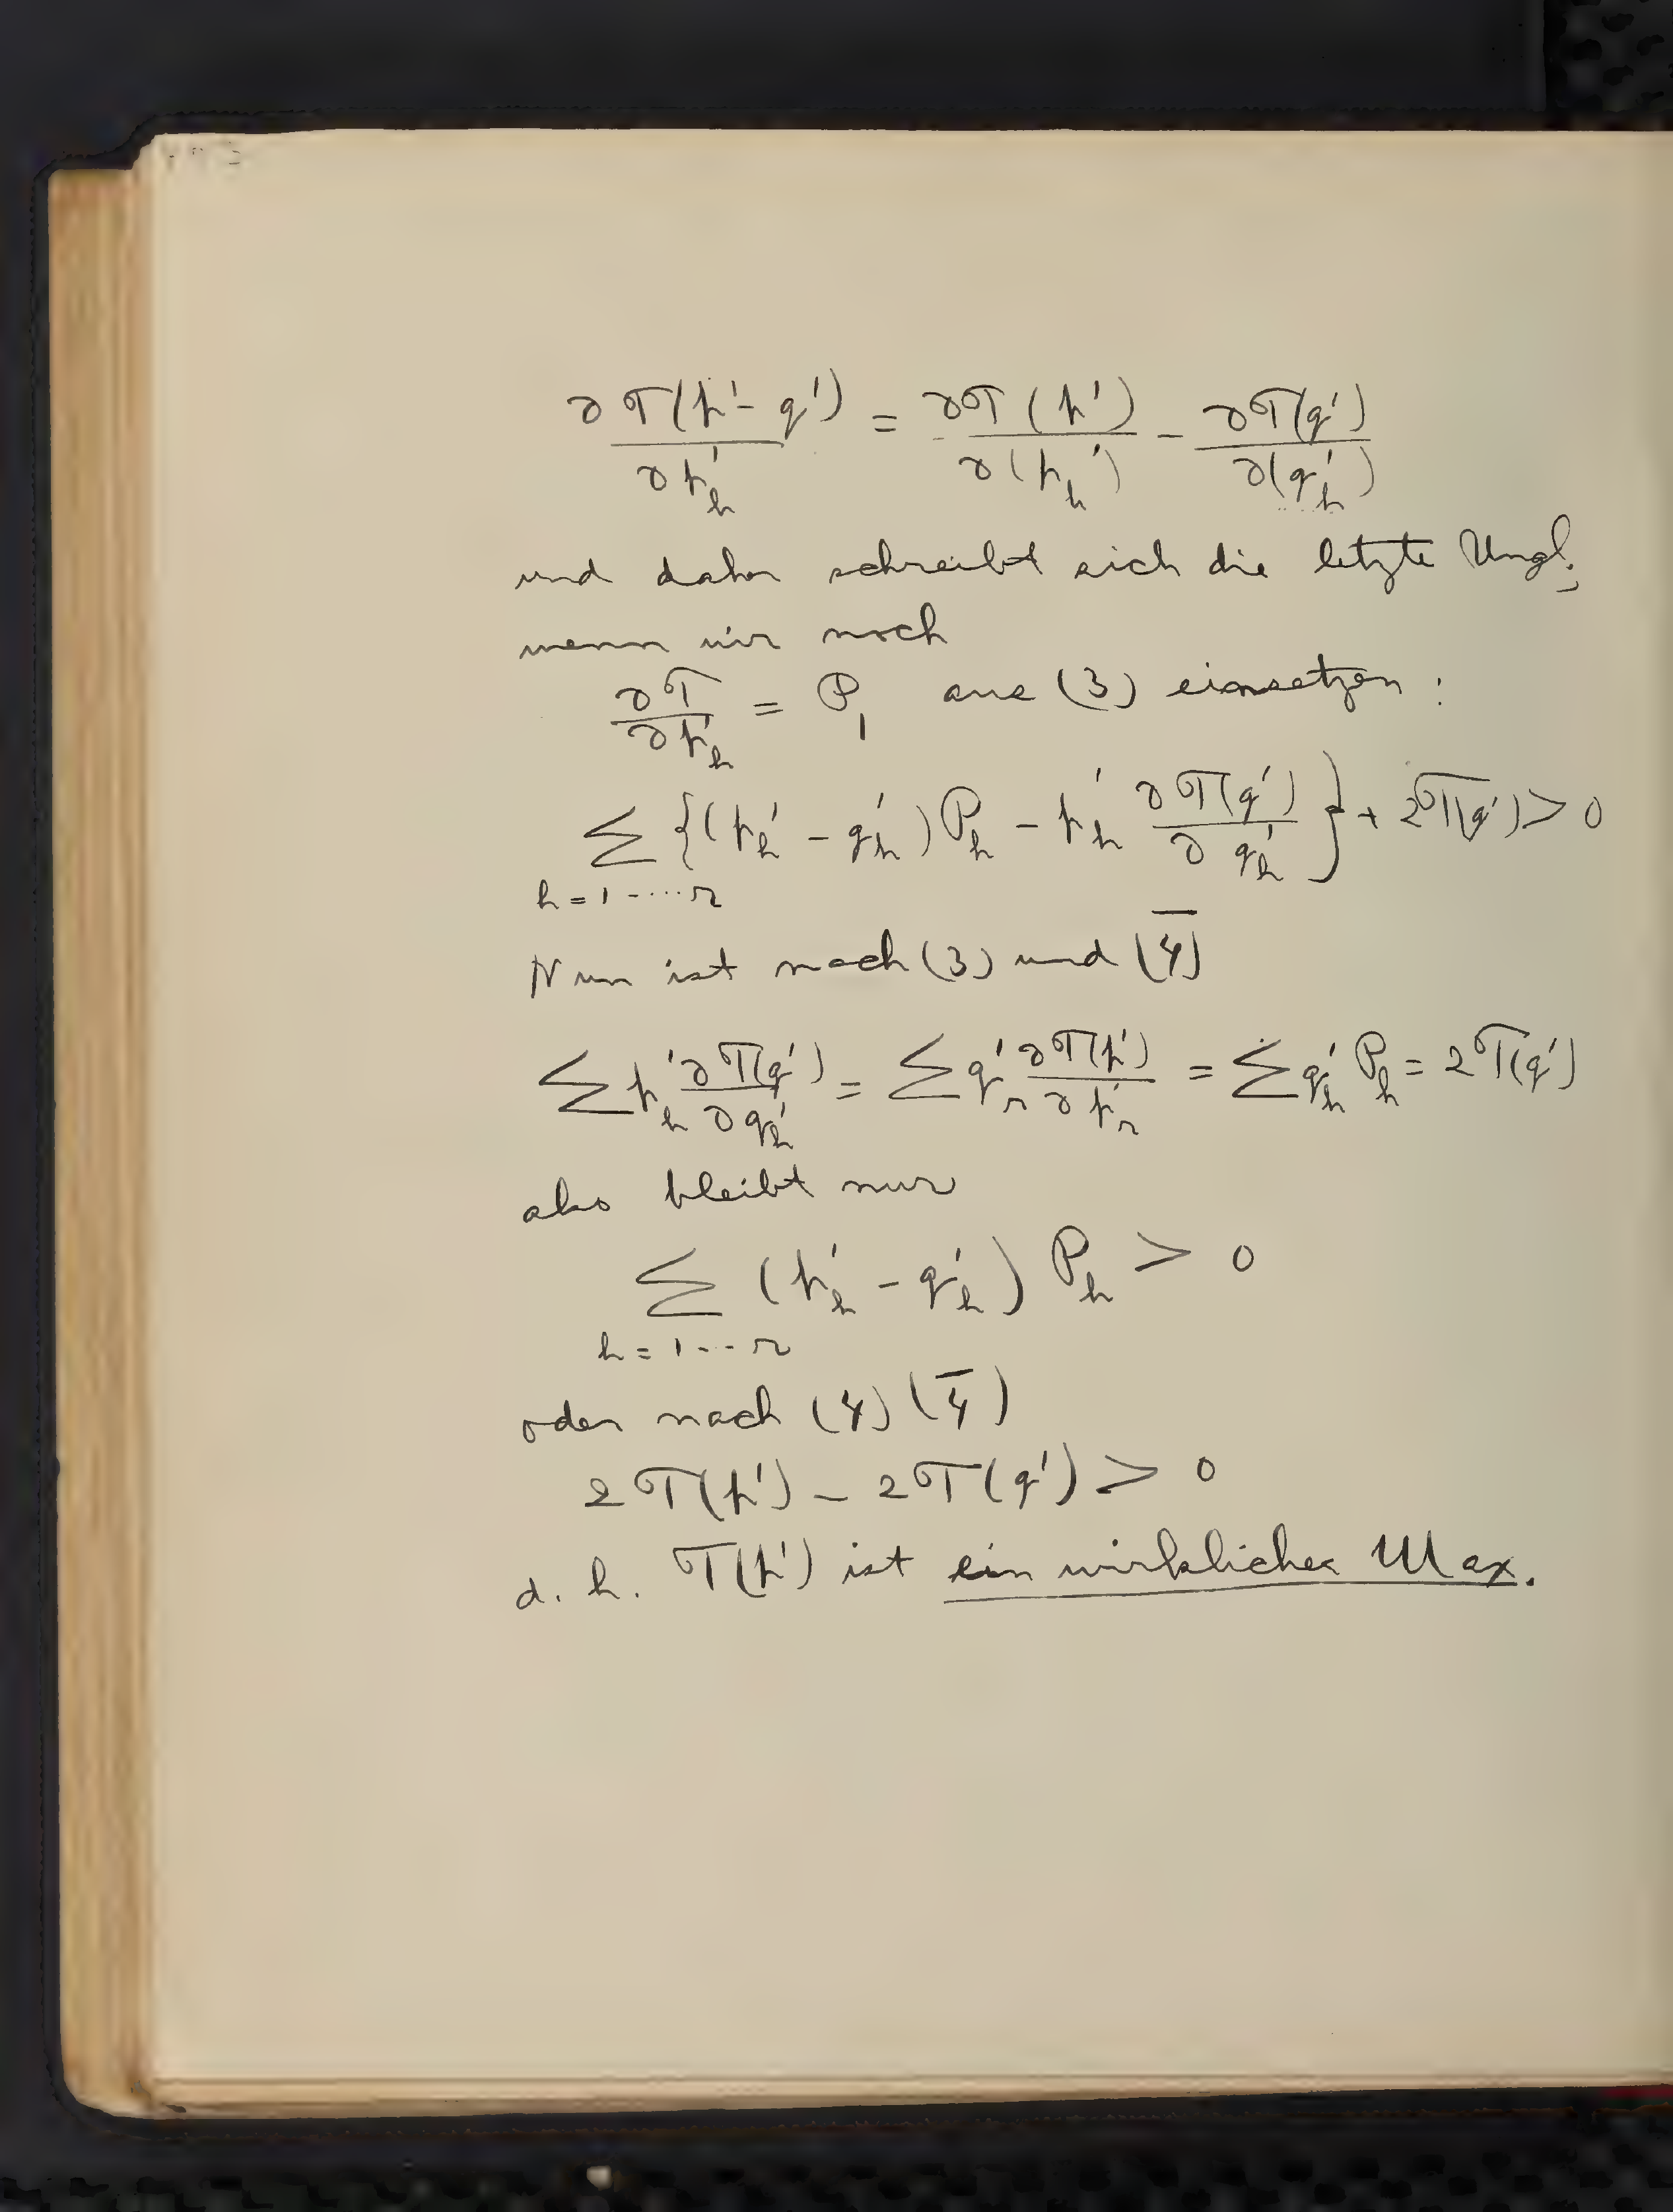 ∂T(p'-q')/∂p'_h = ∂T(p')/∂(p'_h) - ∂T(q')/∂(q'_h)
und daher schreibt sich die letzte Ungl.,
wenn wir noch
∂T/∂p'_h = P_1 aus (3) einsetzen:
∑_{h=1----r} {(p'_h - q'_h)P_h - p'_h ∂T(q')/∂q'_h} + 2T(q') > 0
Nun ist nach (3) und (4̅)
∑ p'_h ∂T(q')/∂q'_h = ∑ q'_r ∂T(p')/∂p'_r = ∑ q'_h P_h = 2T(q')
also bleibt nur
∑_{h=1---r} (p'_h - q'_h) P_h > 0
oder nach (4) (4̅)
2T(p') - 2T(q') > 0
d. h. T(p') ist ein wirkliches Max.